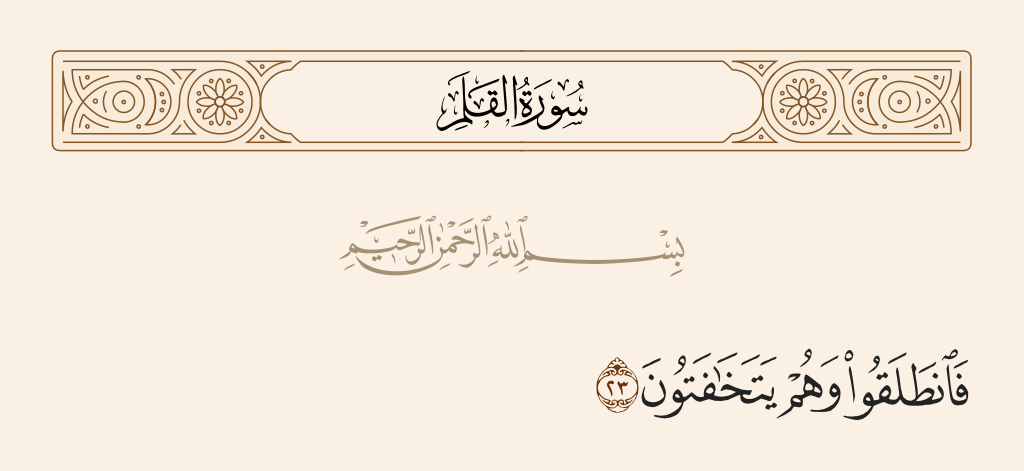 سُورَةُ القَلَمِ
بِسْمِ ٱللَّهِ ٱلرَّحْمَٰنِ ٱلرَّحِيمِ
فَٱنطَلَقُوا۟ وَهُمْ يَتَخَٰفَتُونَ ٢٣